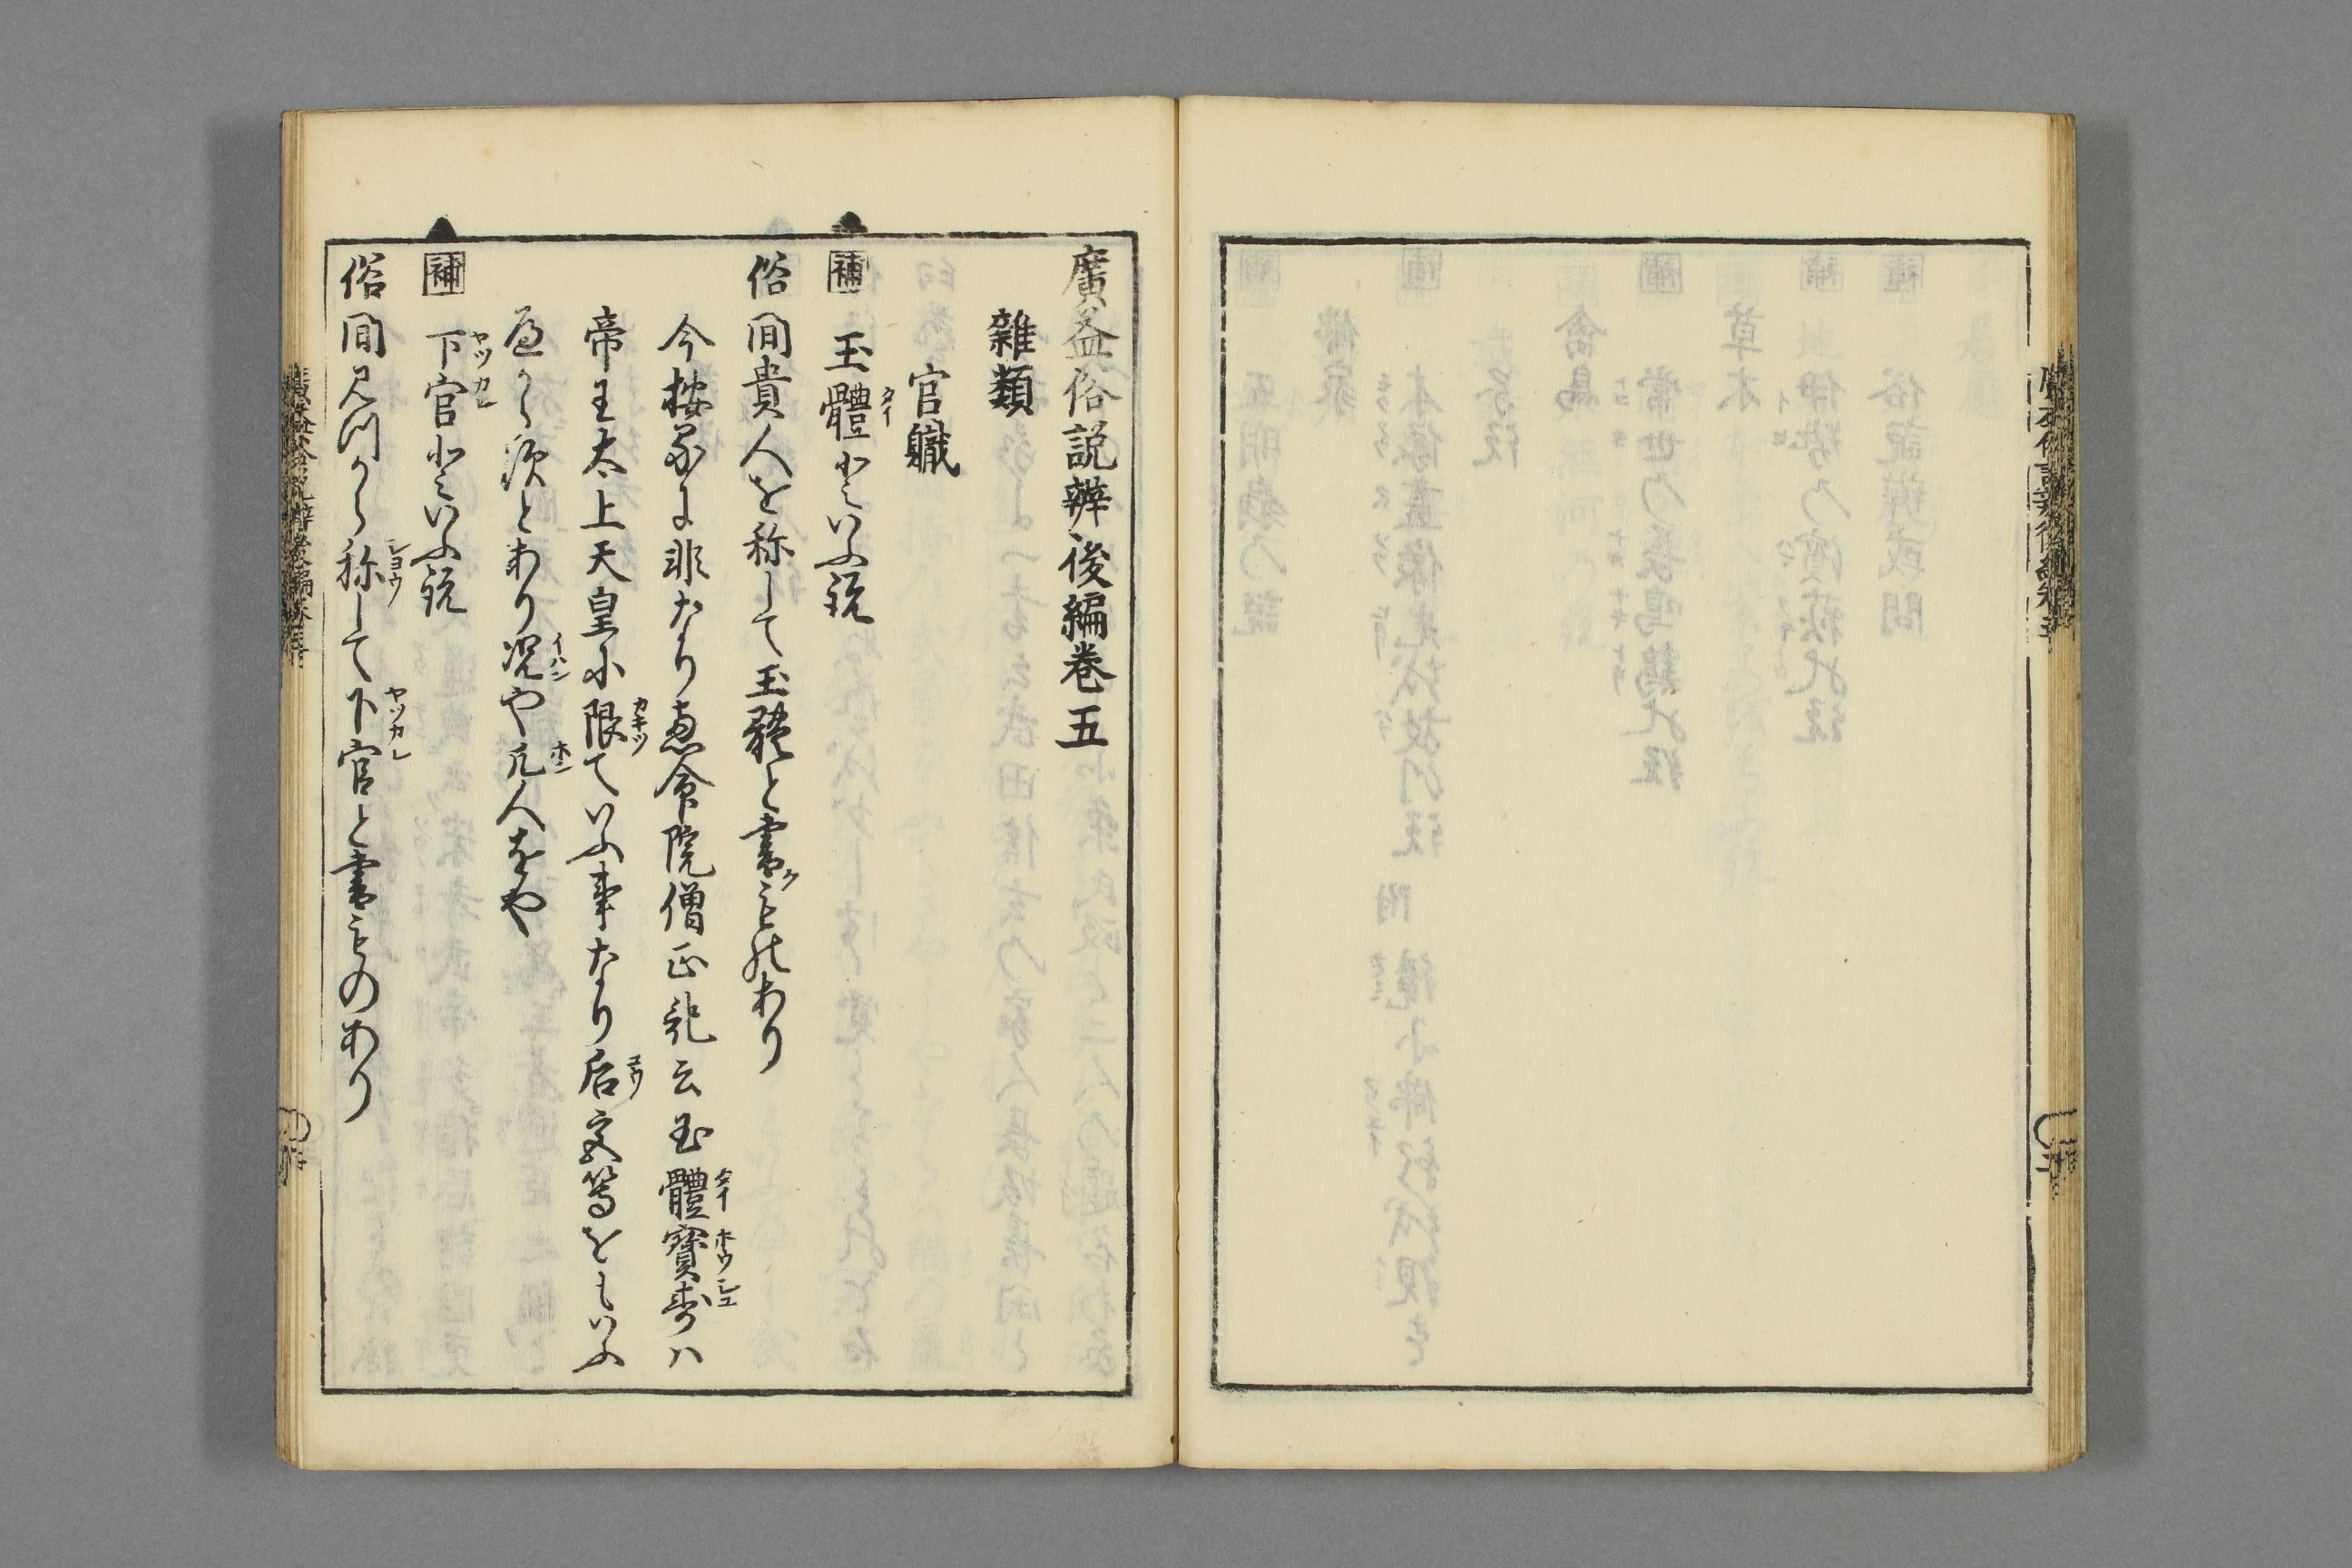 廣益俗説辨後編巻五
雜類
官職
補 玉體といふ説
俗間貴人を称して玉躰と書ものあり
今按るに非なり恵命院僧正記云玉體寶壽ハ
帝王太上天皇に限ていふ事なり后文等をもいふ
へからすとあり况や凡人をや
補 下官といふ説
俗間みつから称して下官と書ものあり